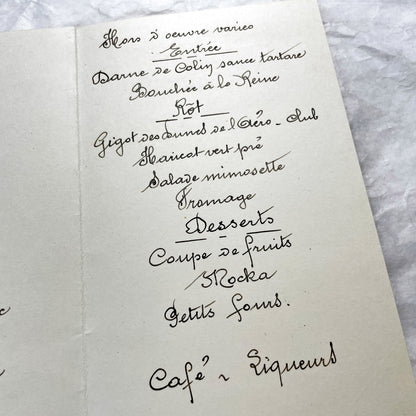 Hors d'oeuvre variés
Entrée
Darne de Colin sauce tartare
Bouchée à la Reine
Rôt
Gigot des Dunes de l'Aéro-Club
Haricot vert pré
Salade mimosette
Fromage
Desserts
Coupe de fruits
Moka
Petits fours.
Café ~ Liqueurs